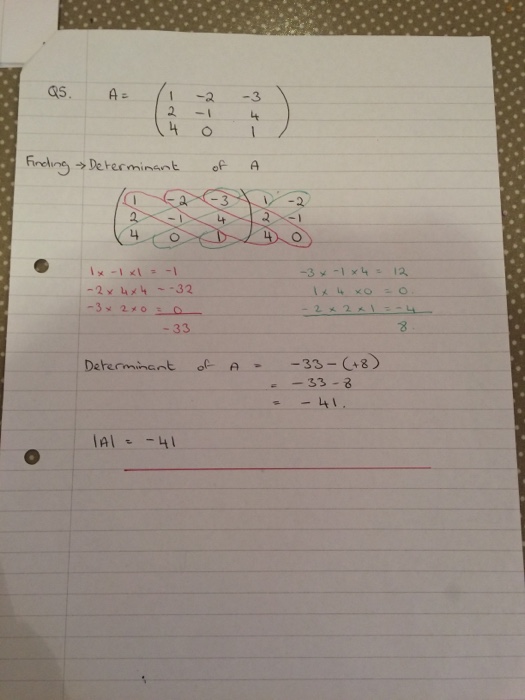 Q5. A = ( 1 -2 -3
2 -1 4
4 0 1 )
Finding → Determinant of A
( 1 -2 -3 ) 1 -2
2 -1 4 2 -1
4 0 1 4 0
1 x -1 x 1 = -1
-2 x 4 x 4 = -32
-3 x 2 x 0 = 0
-33
-3 x -1 x 4 = 12
1 x 4 x 0 = 0
-2 x 2 x 1 = -4
8
Determinant of A = -33 - (+8)
= -33 - 8
= -41.
|A| = -41